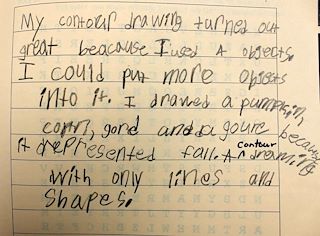 My contour drawing turned out
great beacause I used 4 objects.
I could put more objects
into it. I drawed a pumpkin,
corn, gord and a gourc because
it drepresented fall. A contour drawing
with only lines and
shapes.